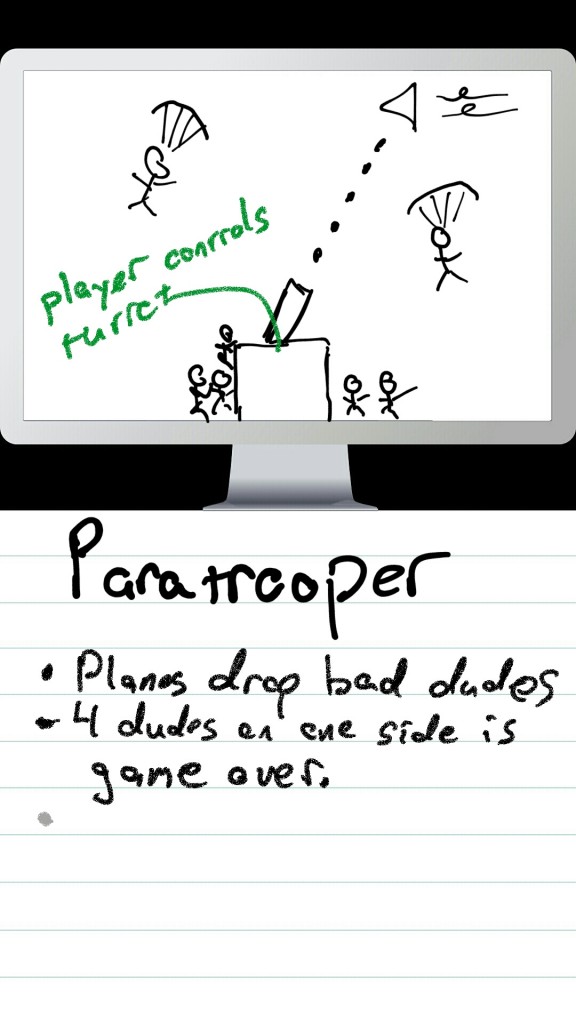 player controls
turret
Paratrooper
• Planes drop bad dudes
• 4 dudes on one side is
game over.